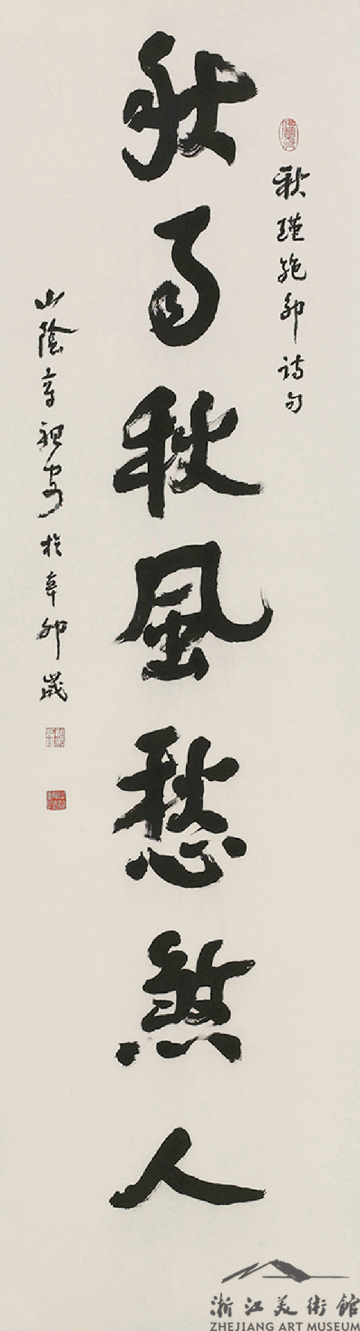 秋瑾絕命诗句
秋雨秋風愁煞人
山陰章祖安於辛卯歲
浙江美術館
ZHEJIANG ART MUSEUM